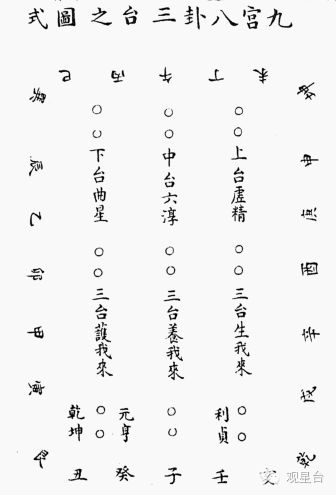 九宮八卦三台之圖式
未
丁
午
丙
巳
坤
申
庚
酉
辛
戌
乾
上台虛精
三台生我來
利貞
中台六淳
三台養我來
元亨
下台曲星
三台護我來
乾坤
巽
辰
乙
卯
甲
寅
艮
亥
壬
子
癸
丑
观星台